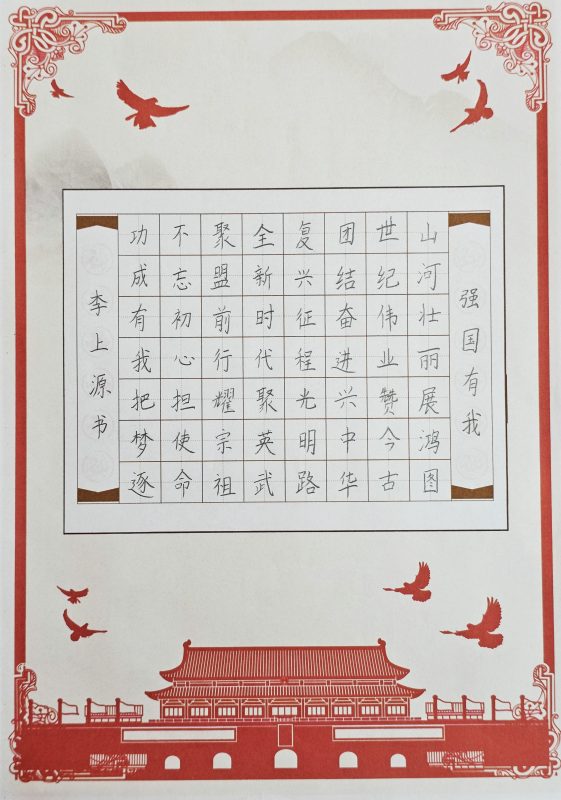 强国有我
山河壮丽展鸿图
世纪伟业赞今古
团结奋进兴中华
复兴征程光明路
全新时代聚英武
聚盟前行耀宗祖
不忘初心担使命
功成有我把梦逐
李上源书